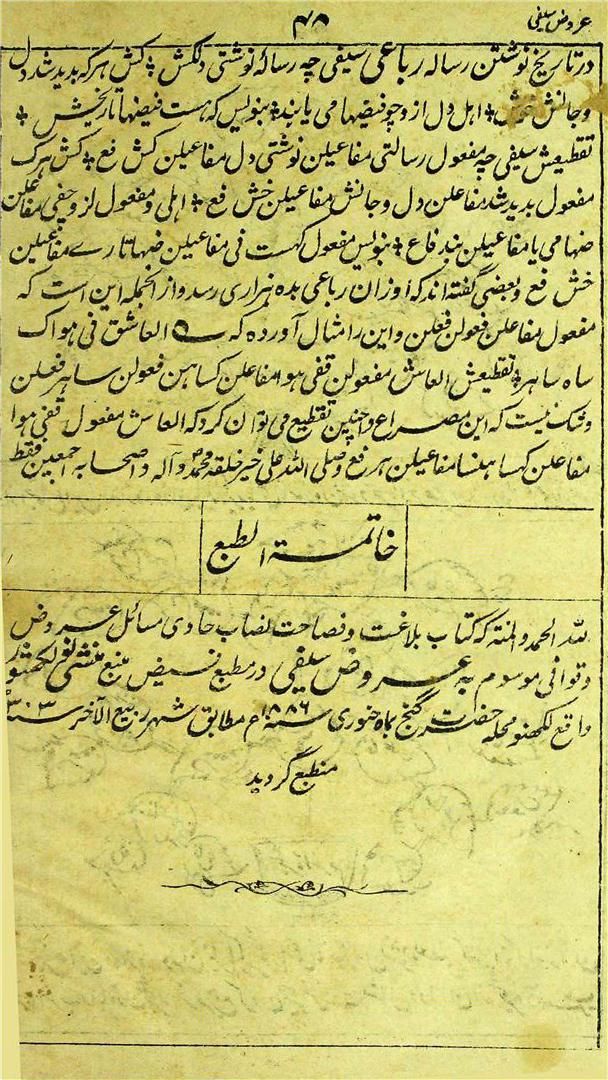 عروض سیفی
۴۸
در تاریخ نوشتن رساله رباعی سیفی چه رسالهٔ نوشتی دلکش * کش هر که بدید شد دل
وجانش خوش * اهل دل ازو چو فیضها می یابند * بنویس که هست فیضها تاریخش *
تقطیعش سیفی چه مفعول رسالتی مفاعیلن نوشتی دل مفاعیلن کش فع * کش هرک
مفعول بدید شد مفاعلن دل و جانش مفاعیلن خش فع * اهلی د مفعول لزو چفی مفاعلن
ضها می یا مفاعیلن بند فاع * بنویس مفعول کهست فی مفاعیلن ضها تارے مفاعیلن
خش فع و بعضی گفته اند که اوزان رباعی بده هزاری رسد و از انجمله این است که
مفعول مفاعلن فعولن فعلن و این را مثال آورده که ؎ العاشق فی هواک
ساه ساهر * تقطیعش العاش مفعولن قفی هوا مفاعلن کساهن فعولن ساهر فعلن
و شک نیست که این مصراع را چنین تقطیع می توان کرد که العاش مفعول قفی هوا
مفاعلن کساهنسا مفاعیلن هر فع و صلی الله علی خیر خلقه محمد و آله و اصحابه اجمعین فقط
خاتمة الطبع
لله الحمد والمنة که کتاب بلاغت و فصاحت نصاب حاوی مسائل عروض
و قوافی موسوم به عروض سیفی در مطبع فیض منبع منشی نولکشور
واقع لکهنو محله حضرت گنج بماه جنوری سنه ۱۸۸۶ م مطابق شهر ربیع الآخر سنه ۱۳۰۳
منطبع گردید